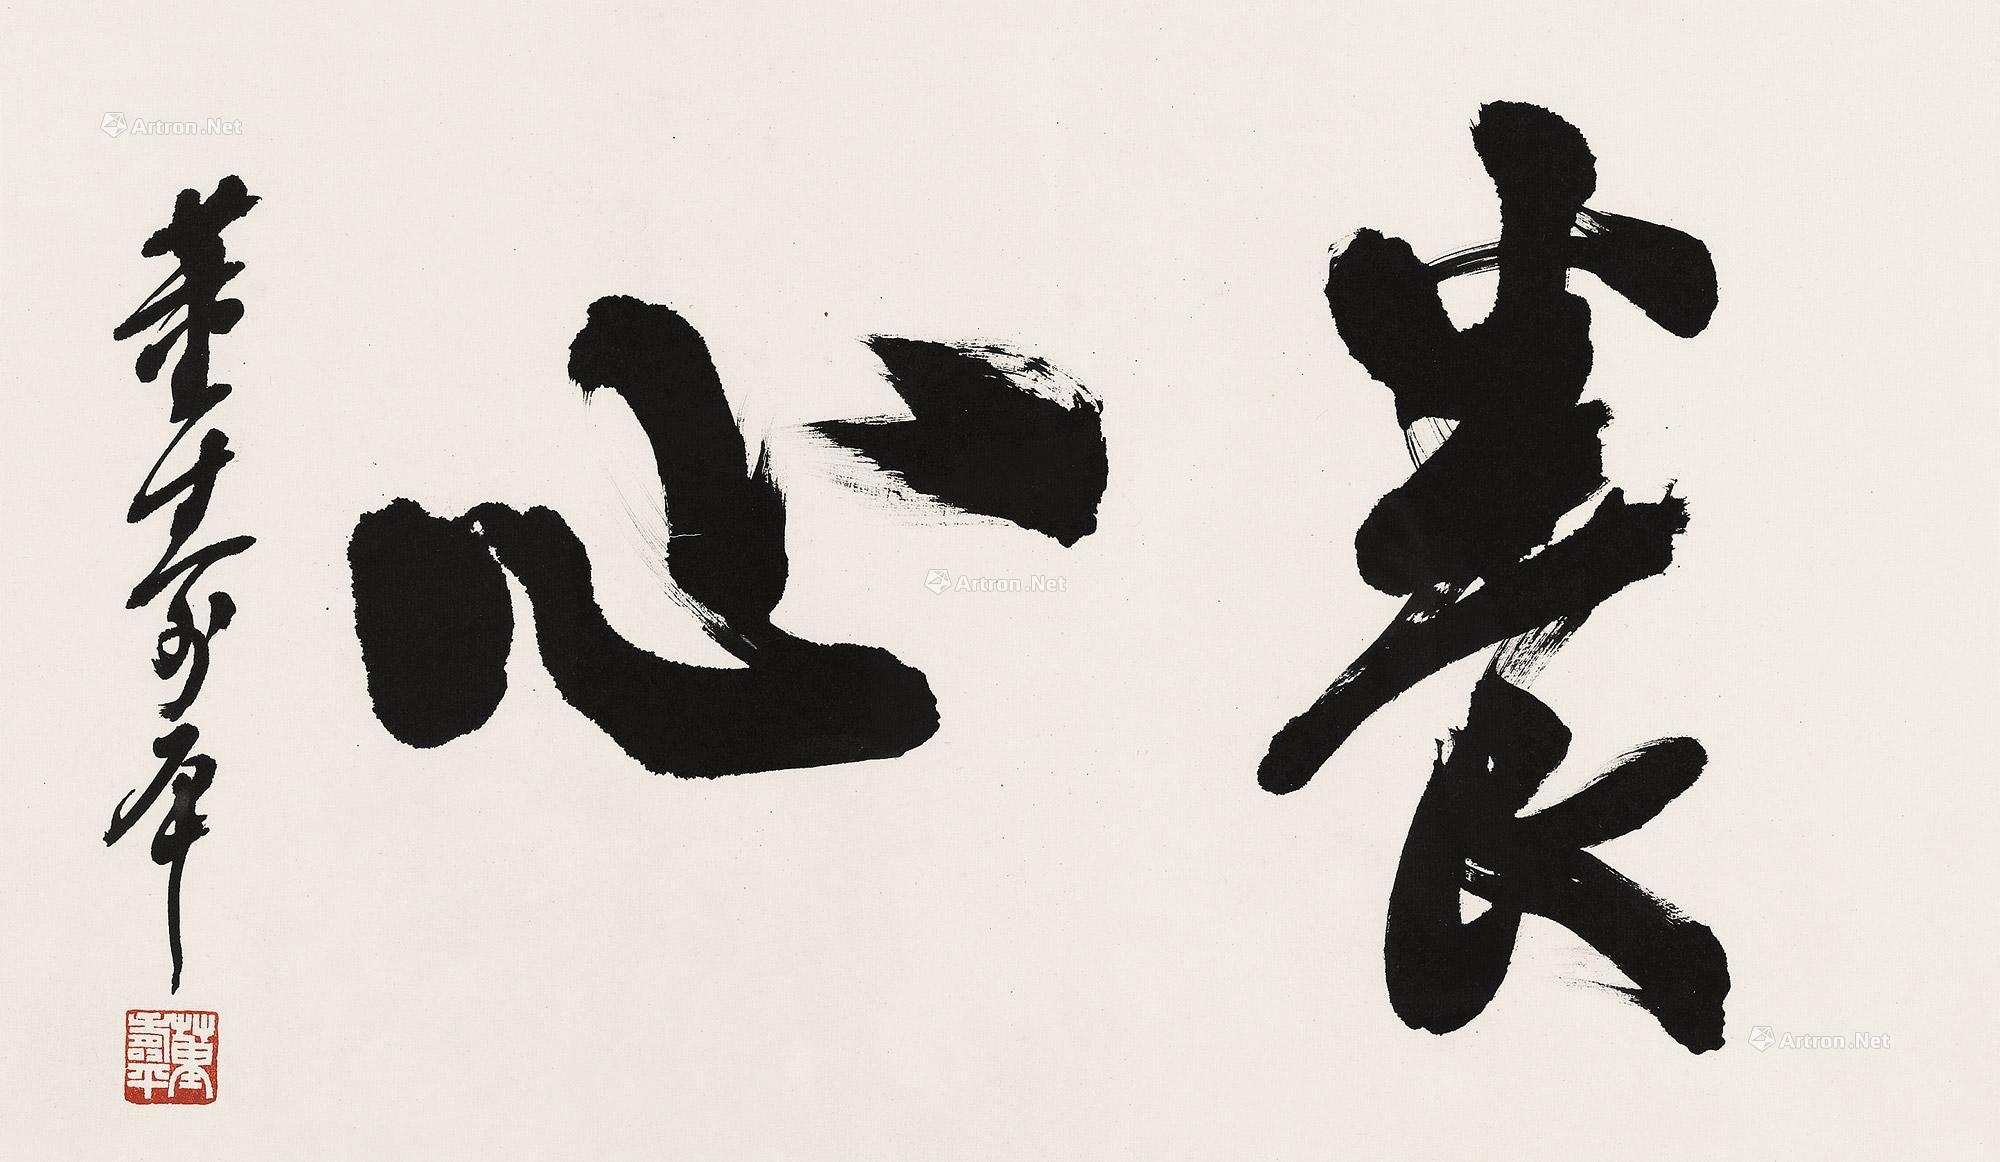 養心
董壽平
董壽平
Artron.Net
Artron.Net
Artron.Net